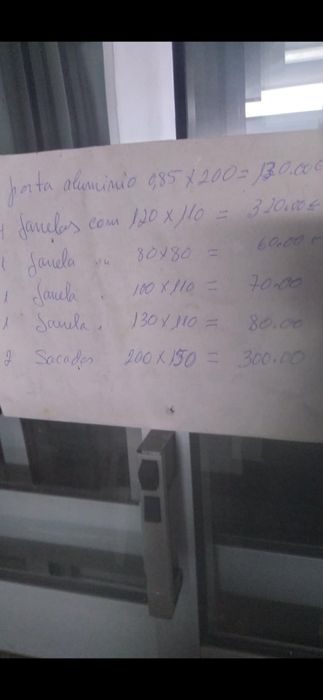 porta aluminio 0,85 X 200 = 130.00€
4 Janelas com 120 X 110 = 320.00€
1 Janela " 80X80 = 60.00
1 Janela . 100 X 110 = 70.00
1 Janela . 130 X 110 = 80.00
2 Sacadas 200 X 150 = 300.00